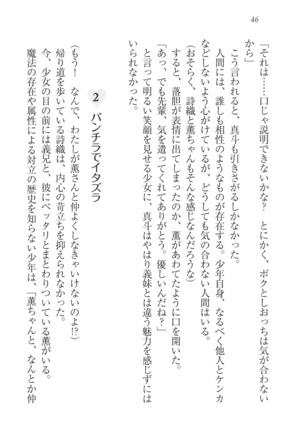 46
「それは……口じゃ説明できないかな? とにかく、ボクとしおっちは気が合わない
から」
こう言われると、真斗も引きさがるしかなかった。
人間には、誰しも相性のようなものが存在する。少年自身、なるべく他人とケンカ
などしないよう心がけているが、どうしても気の合わない人間はいる。
(おそらく、詩織と薫ちゃんもそんな感じなんだろうな)
すると、落胆が表情に出てしまったのか、薫があわてたように口を開いた。
「あっ、でも先輩、気を遣ってくれてありがとう。優しいんだね?」
と言って明るい笑顔を見せる少女に、真斗はやはり義妹とは違う魅力を感じずには
いられなかった。
2 パンチラでイタズラ
(もう! なんで、わたしが薫さんと仲よくしなきゃいけないのよ!?)
帰り道を歩いている詩織は、内心の苛立ちを抑えられなかった。
今、少女の目の前には義兄と、彼にベッタリとまとわりついている薫がいる。
魔法の存在や属性による対立の歴史を知らない少年は、「薫ちゃんと、なんとか仲